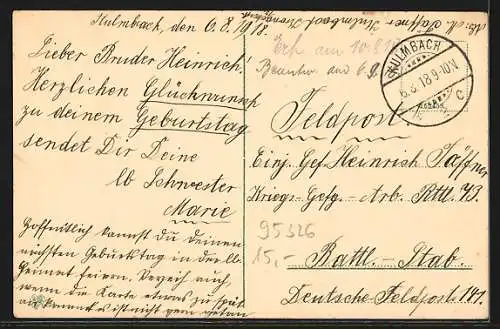 Kulmbach, den 6.8.1918.
Lieber Bruder Heinrich!
Herzlichen Glückwunsch
zu deinem Geburtstag
sendet Dir Deine
lb Schwester
Marie
Hoffentlich kannst du deinen
nächsten Geburtstag in der lb.
Heimat feiern. Verzeih auch,
wenn die Karte etwas zu spät
ankommt ist nicht gern getan
Erh am 10.8.18
Beantw. am
KULMBACH
6.8.18.9-10V.
C
Feldpost.
Einj. Gef. Heinrich Taffner
Kriegs-Gefg.-Arb. Batl. 43.
Battl.-Stab.
Deutsche Feldpost 141.
95326
15,-